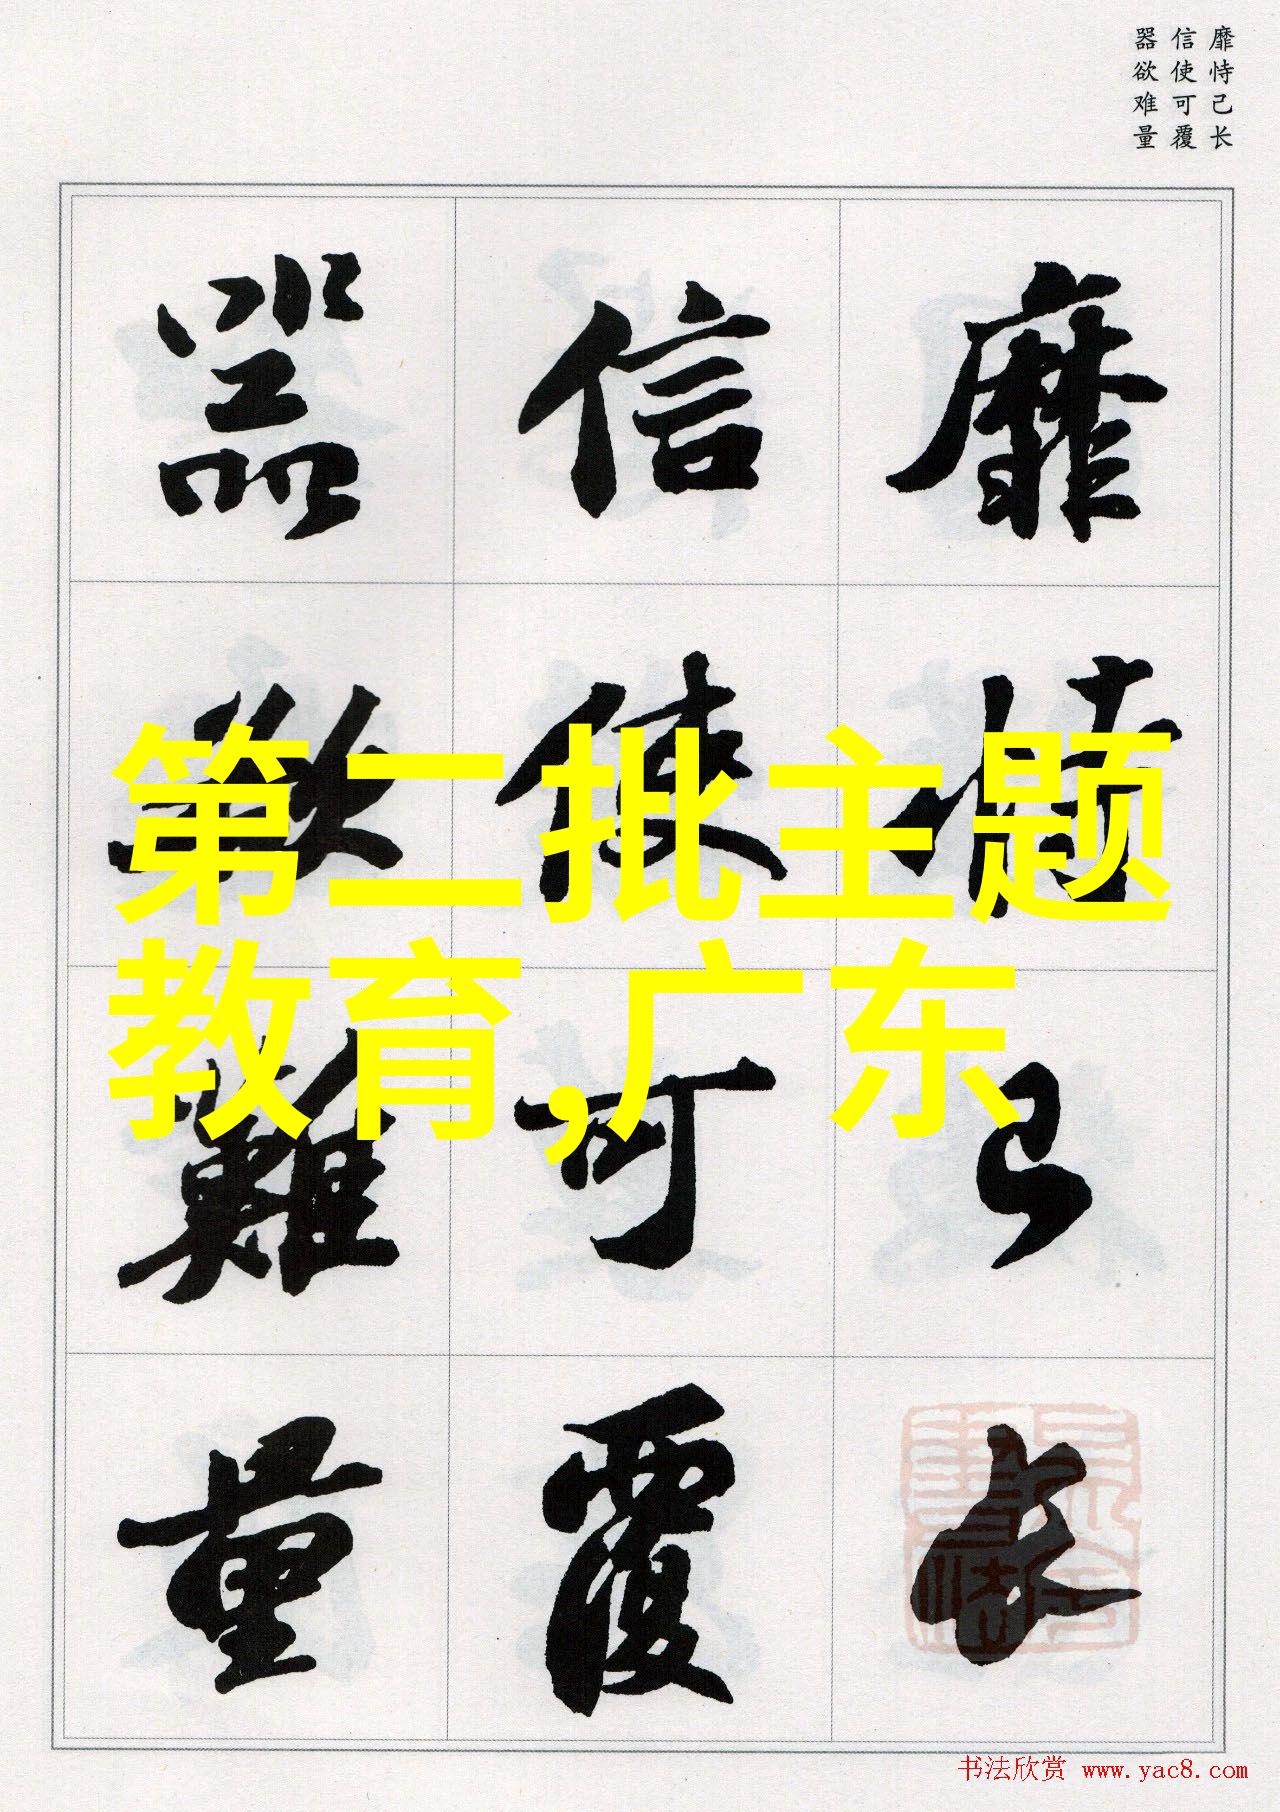 靡恃己长
信使可覆
器欲难量
靡恃己長
信使可覆
器欲難量
第二批主题
教育,广东
书法欣赏 www.yac8.com